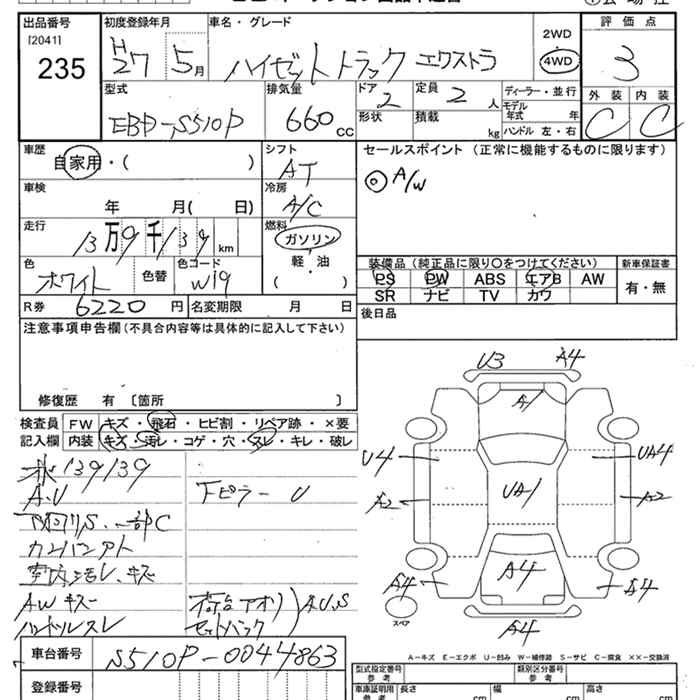 出品番号 初度登録年月 車名・グレード 評価点
[2041]
235
H27 5月 ハイゼットトラック エクストラ 2WD 4WD 3
外装 内装
C C
型式 排気量 ドア 定員 ディーラー・並行
EBD-S510P 660 CC 2 2人 モデル年式 年
形状 積載 kg ハンドル 左・右
車歴 シフト セールスポイント (正常に機能するものに限ります)
自家用・( ) AT
◎ A/W
車検 冷房
年 月( 日) A/C
走行 燃料
13万9千139km ガソリン
軽・油
( )
色 色替 色コード
ホワイト W19
装備品 (純正品に限り○をつけてください) 新車保証書
PS PW ABS エアB AW 有・無
SR ナビ TV カワ
R券 6220円 名変期限 月 日 後日品
注意事項申告欄 (不具合内容等は具体的に記入して下さい)
修復歴 有 〔箇所 〕
検査員 記入欄
FW キズ・飛石・ヒビ割・リペア跡・×要
内装 キズ・汚レ・コゲ・穴・スレ・キレ・破レ
139139
A.U 下ピラー U
下回りS.一部C
カンバンアト
室内汚レ.キズ
AWキズ 荷台アオリ A.U.S
ハンドルスレ セットバック
U3 A4
A1
U4 UA4
A2 UA1 A2
A4 A4 A4
スペア
A4
A-キズ E-エクボ U-凹み W-補修跡 S-サビ C-腐食 ××-交換済
車台番号 S510P-0044863
登録番号
型式指定番号 参考 類別区分番号 参考
車庫証明用 参考 長さ cm 幅 cm 高さ cm